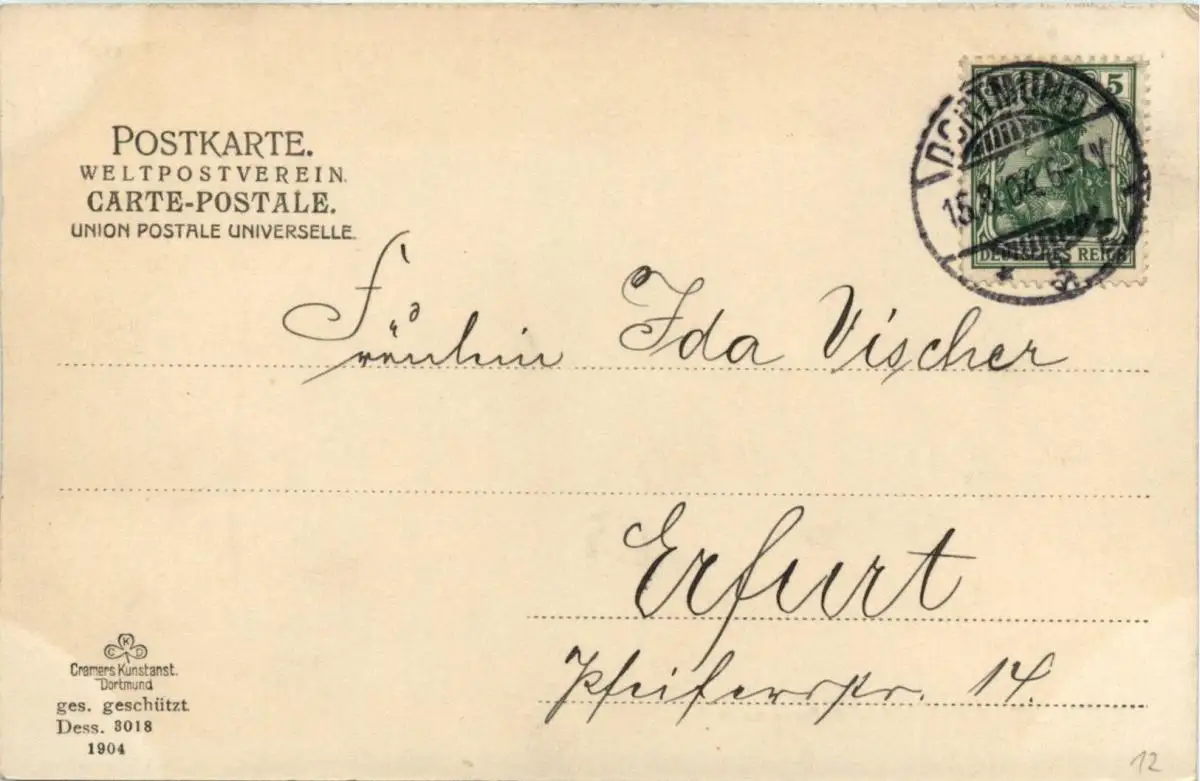 POSTKARTE.
WELTPOSTVEREIN.
CARTE-POSTALE.
UNION POSTALE UNIVERSELLE.
5
DORTMUND
DEUTSCHES REICH
Fräulein Ida Vischer
Erfurt
Pfeiferstr. 14.
CKD
Cramers Kunstanst.
Dortmund
ges. geschützt
Dess. 3018
1904
12